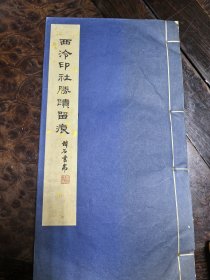 西泠印社勝蹟留痕